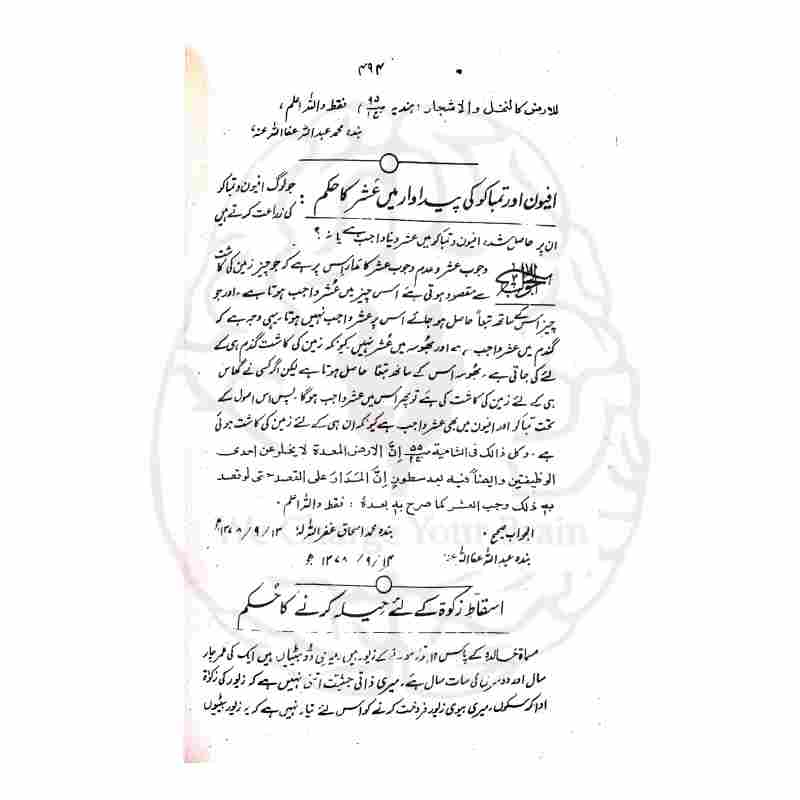 ۴۹۴
للارض کالنخل والاشجار (ہندیہ ص۹۵ ج۱) فقط واللہ اعلم،
بندہ محمد عبداللہ عفا اللہ عنہ
افیون اور تمباکو کی پیداوار میں عُشر کا حکم : جو لوگ افیون و تمباکو
کی زراعت کرتے ہیں
ان پر حاصل شدہ افیون و تمباکو میں عشر دینا واجب ہے یا نہ؟
الجواب وجوب عشر و عدم وجوب عشر کا مدار اس پر ہے کہ جو چیز زمین کی کاشت
سے مقصود ہوتی ہے اس چیز میں عُشر واجب ہوتا ہے، اور جو
چیز اس کے ساتھ تبعاً حاصل ہو جائے اس پر عشر واجب نہیں ہوتا، یہی وجہ ہے کہ
گندم میں عشر واجب ہے اور بھُوسہ میں عُشر نہیں کیونکہ زمین کی کاشت گندم ہی کے
لئے کی جاتی ہے، بھُوسہ اس کے ساتھ تبعًا حاصل ہوتا ہے لیکن اگر کسی نے گھاس
ہی کے لئے زمین کی کاشت کی ہے تو پھر اس میں عشر واجب ہوگا، پس اس اصول کے
تحت تمباکو اور افیون میں بھی عشر واجب ہے کیونکہ ان ہی کے لئے زمین کی کاشت ہوئی
ہے، وکل ذالک فی الشامیة ص۵۵ ج۲ إنَّ الارض المعدة لا یخلو عن احدی
الوظیفتین وایضاً فیه بعد سطور إنَّ المدار علی القصد حتی لو قصد
به ذلک وجب العشر کما صرح به بعدهٗ : فقط واللہ اعلم،
الجواب صحیح، بندہ محمد اسحاق غفر اللہ لہٗ ۱۳ / ۹ / ۱۳۷۸ھ
بندہ عبداللہ عفا اللہ عنہ ۱۴ / ۹ / ۱۳۷۸ ھ
اسقاطِ زکوٰۃ کے لئے حیلہ کرنے کا حُکم
مسماۃ خالدہ کے پاس تولہ سونے کے زیور ہیں، میری دو بیٹیاں ہیں ایک کی عمر چار
سال اور دوسری کی سات سال ہے، میری ذاتی حیثیت اتنی نہیں ہے کہ زیور کی زکوٰۃ
ادا کر سکوں، میری بیوی زیور فروخت کرنے کو اس لئے تیار نہیں ہے کہ یہ زیور بیٹیوں
We Change Your Brain